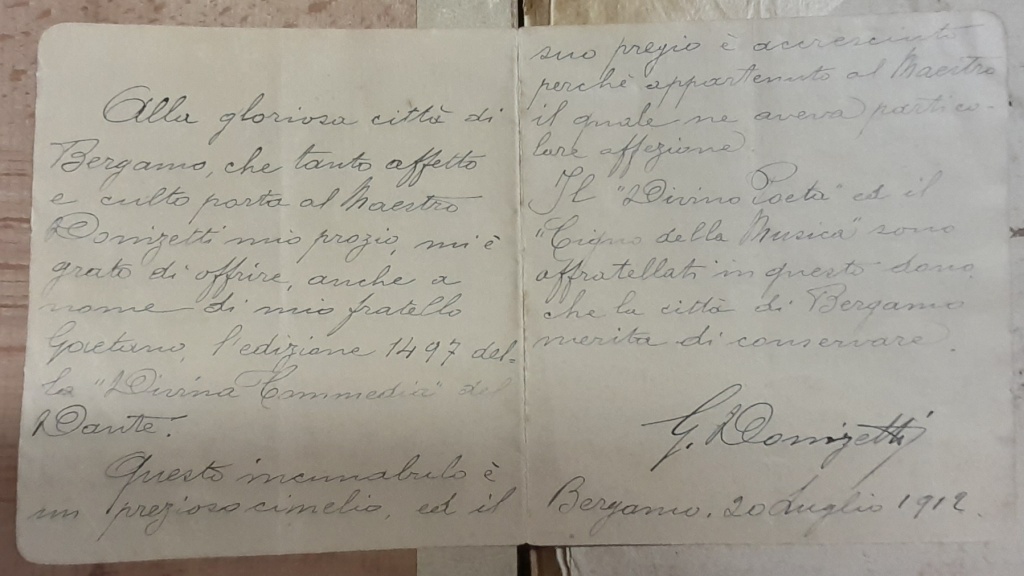 Alla gloriosa città di
Bergamo, che tanto affetto
e culto porta al Maestro
Donizetti mio prozio, mi è
grato di offrire, anche a
nome di mio fratello
Gaetano, l'edizione 1497 del-
la "Divina Commedia" del
Dante.
Questo incunabulo è
un prezioso cimelio, ed il
suo pregio è accresciuto
perchè appartenuto al Maestro
il quale ne aveva partico-
lare affezione
Il "Divino Poeta" ed il
"Cigno della Musica" sono
affratellati in questo dono,
che la città di Bergamo
merita di conservare.
G. Donizetti
Bergamo, 20 Luglio 1912.